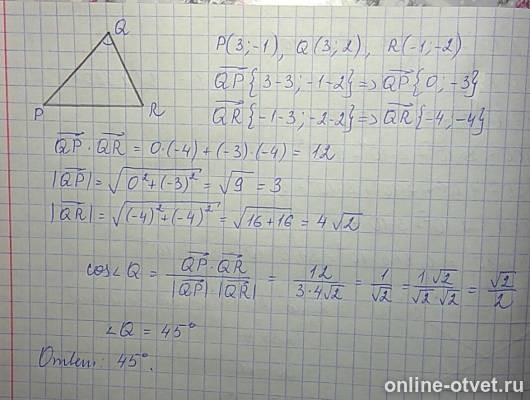 Q
P
R
P(3;-1), Q(3;2), R(-1;-2)
QP{3-3;-1-2}=>QP{0;-3}
QR{-1-3;-2-2}=>QR{-4;-4}
QP·QR = 0·(-4)+(-3)·(-4) = 12
|QP| = √(0²+(-3)²) = √9 = 3
|QR| = √((-4)²+(-4)²) = √(16+16) = 4√2
cos∠Q = QP·QR / |QP|·|QR| = 12 / 3·4√2 = 1/√2 = 1·√2 / √2·√2 = √2/2
∠Q = 45°
Ответ: 45°.
online-otvet.ru